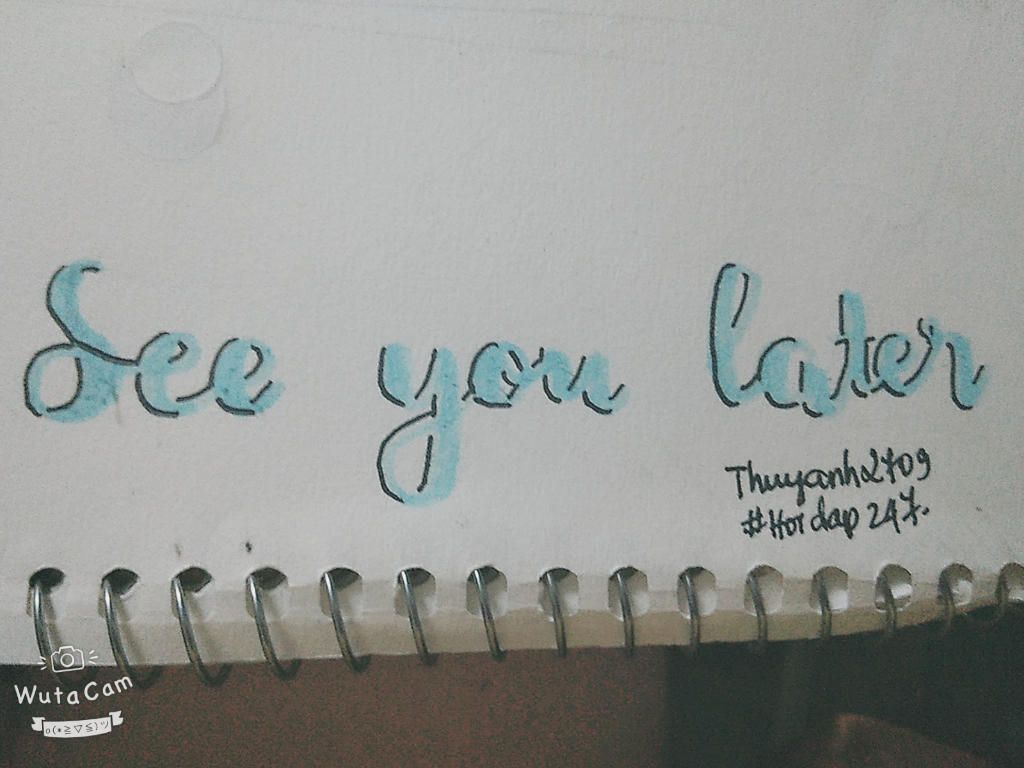 See you later
Thuyanh2709
#Hoidap 247.
WutaCam
o(*≧▽≦)ツ